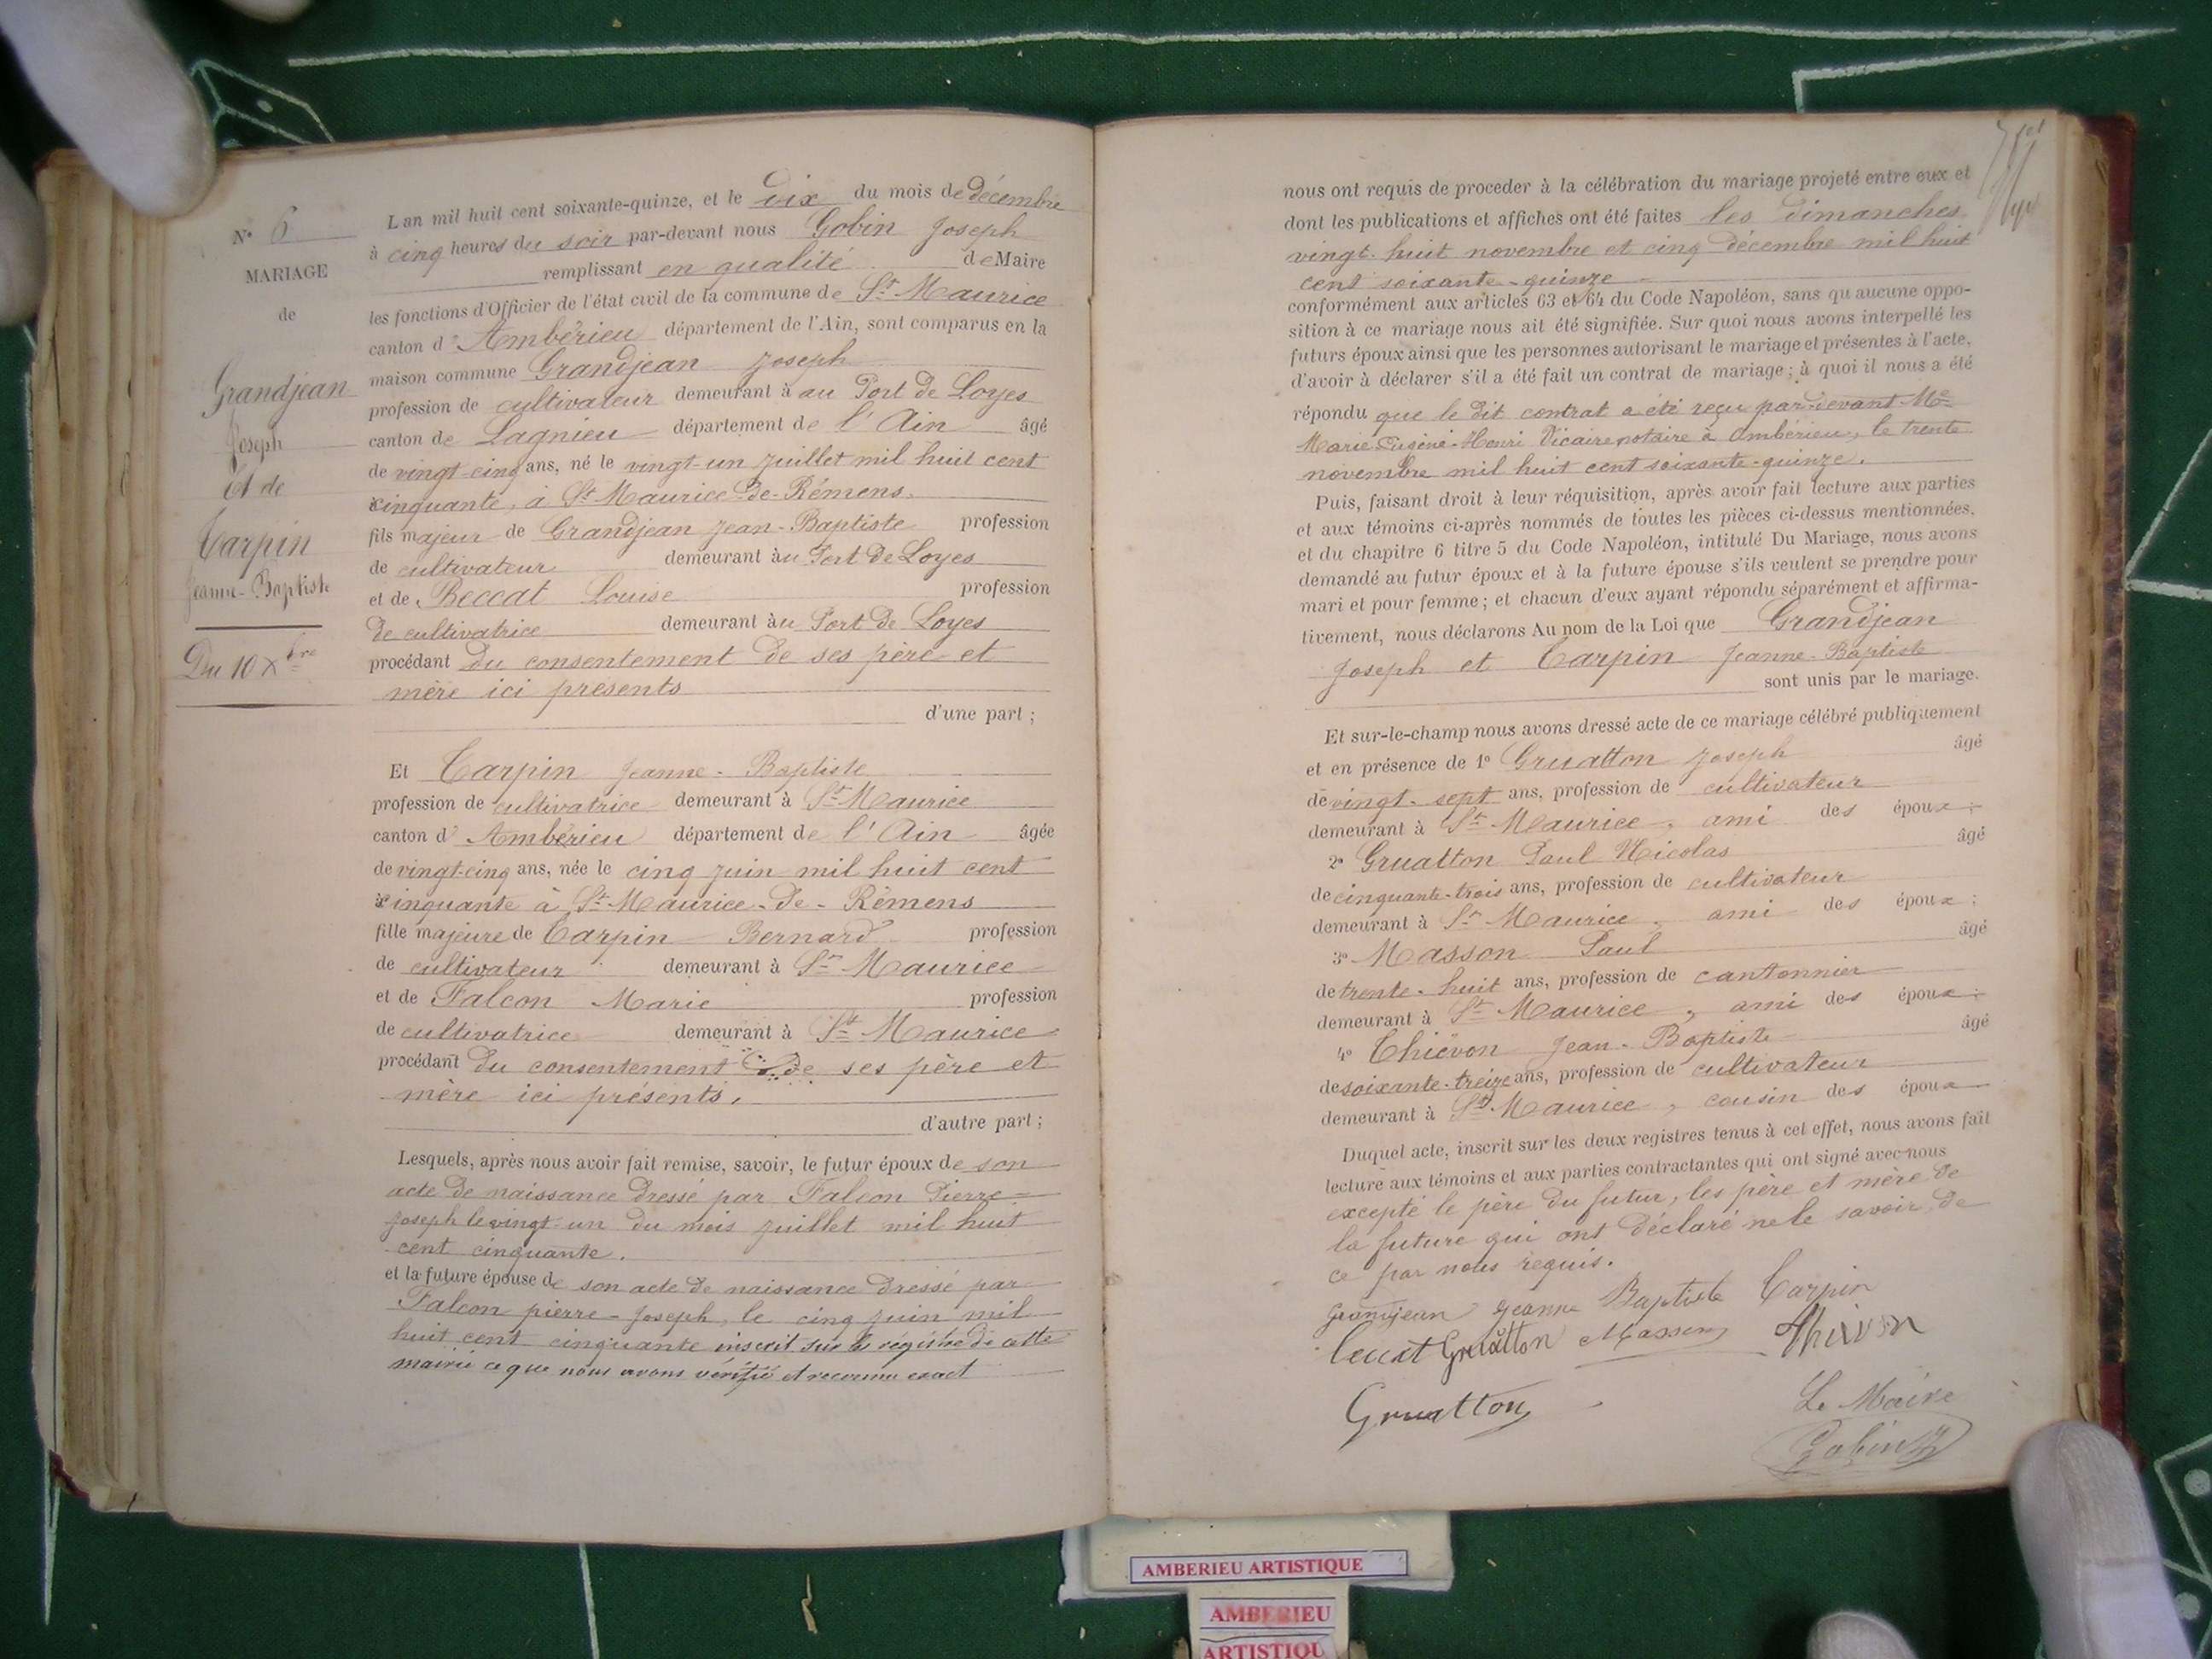 N° 6
MARIAGE
de
Grandjean
Joseph
Et de
Carpin
Jeanne-Baptiste
Du 10 Xbre
L'an mil huit cent soixante-quinze, et le dix du mois de décembre
à cinq heures du soir par-devant nous Gobin Joseph
remplissant en qualité de Maire
les fonctions d'Officier de l'état civil de la commune de St Maurice
canton d'Ambérieu département de l'Ain, sont comparus en la
maison commune Grandjean Joseph
profession de cultivateur demeurant à au Port de Loyes
canton de Lagnieu département de l'Ain âgé
de vingt-cinq ans, né le vingt-un juillet mil huit cent
cinquante, à St Maurice-de-Rémens.
fils majeur de Grandjean Jean-Baptiste profession
de cultivateur demeurant àu Port de Loyes
et de Beccat Louise profession
de cultivatrice demeurant àu Port de Loyes
procédant du consentement de ses père et
mère ici présents
d'une part ;
Et Carpin Jeanne-Baptiste
profession de cultivatrice demeurant à St Maurice
canton d'Ambérieu département de l'Ain âgée
de vingt-cinq ans, née le cinq juin mil huit cent
cinquante à St-Maurice-de-Rémens
fille majeure de Carpin Bernard profession
de cultivateur demeurant à St Maurice
et de Falcon Marie profession
de cultivatrice demeurant à St Maurice
procédant du consentement de ses père et
mère ici présents.
d'autre part ;
Lesquels, après nous avoir fait remise, savoir, le futur époux de son
acte de naissance dressé par Falcon Pierre-
Joseph le vingt-un du mois juillet mil huit
cent cinquante.
et la future épouse de son acte de naissance dressé par
Falcon pierre-Joseph, le cinq juin mil
huit cent cinquante inscrit sur le régistre de cette
mairie ce que nous avons vérifié et reconnu exact
nous ont requis de proceder à la célébration du mariage projeté entre eux et
dont les publications et affiches ont été faites les dimanches
vingt-huit novembre et cinq décembre mil huit
cent soixante-quinze
conformément aux articles 63 et 64 du Code Napoléon, sans qu'aucune oppo-
sition à ce mariage nous ait été signifiée. Sur quoi nous avons interpellé les
futurs époux ainsi que les personnes autorisant le mariage et présentes à l'acte,
d'avoir à déclarer s'il a été fait un contrat de mariage ; à quoi il nous a été
répondu que le dit contrat a été reçu par-devant Me
Marie-Eugène-Henri Vicaire notaire à Ambérieu, le trente
novembre mil huit cent soixante-quinze.
Puis, faisant droit à leur réquisition, après avoir fait lecture aux parties
et aux témoins ci-après nommés de toutes les pièces ci-dessus mentionnées,
et du chapitre 6 titre 5 du Code Napoléon, intitulé Du Mariage, nous avons
demandé au futur époux et à la future épouse s'ils veulent se prendre pour
mari et pour femme ; et chacun d'eux ayant répondu séparément et affirma-
tivement, nous déclarons Au nom de la Loi que Grandjean
Joseph et Carpin Jeanne-Baptiste
sont unis par le mariage.
Et sur-le-champ nous avons dressé acte de ce mariage célébré publiquement
et en présence de 1° Gruatton Joseph âgé
de vingt-sept ans, profession de cultivateur
demeurant à St Maurice, ami des époux ;
2° Gruatton Paul Nicolas âgé
de cinquante-trois ans, profession de cultivateur
demeurant à St Maurice, ami des époux ;
3° Masson Paul âgé
de trente-huit ans, profession de cantonnier
demeurant à St Maurice, ami des époux ;
4° Thiévon Jean-Baptiste âgé
de soixante-treize ans, profession de cultivateur
demeurant à St Maurice, cousin des époux
Duquel acte, inscrit sur les deux registres tenus à cet effet, nous avons fait
lecture aux témoins et aux parties contractantes qui ont signé avec nous
excepté le père du futur, les père et mère de
la future qui ont déclaré ne le savoir, de
ce par nous requis.
Grandjean Jeanne Baptiste Carpin
Gruatton Masson Thievon
Gruatton
Le Maire
Gobin
AMBERIEU ARTISTIQUE
AMBERIEU
ARTISTIQU